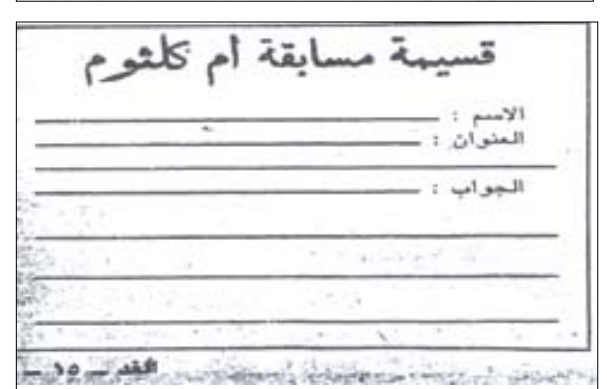 قسيمة مسابقة أم كلثوم
الاسم :
العنوان :
الجواب :
الغد — ١٥ —